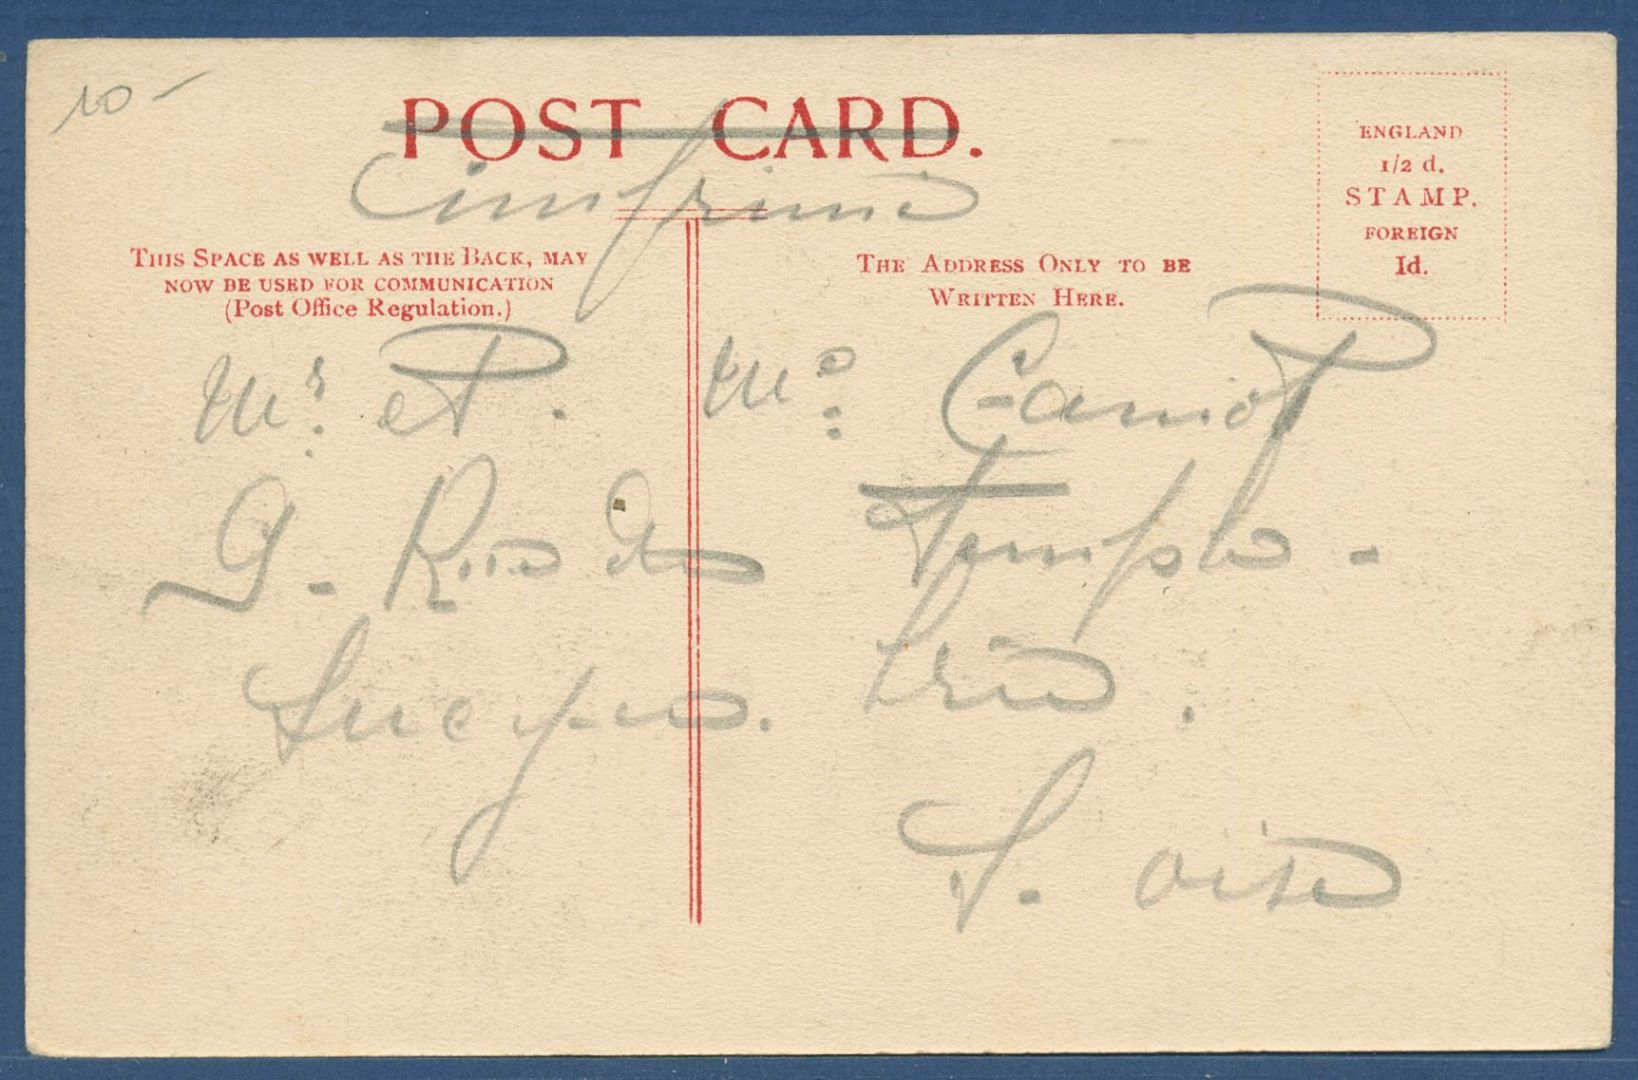 10 -
POST CARD.
Imprimé
ENGLAND
1/2 d.
STAMP.
FOREIGN
1d.
THIS SPACE AS WELL AS THE BACK, MAY
NOW BE USED FOR COMMUNICATION
(Post Office Regulation.)
THE ADDRESS ONLY TO BE
WRITTEN HERE.
Mr. et. Me. Camot
9. Rue du Temple.
Brie.
S. oise